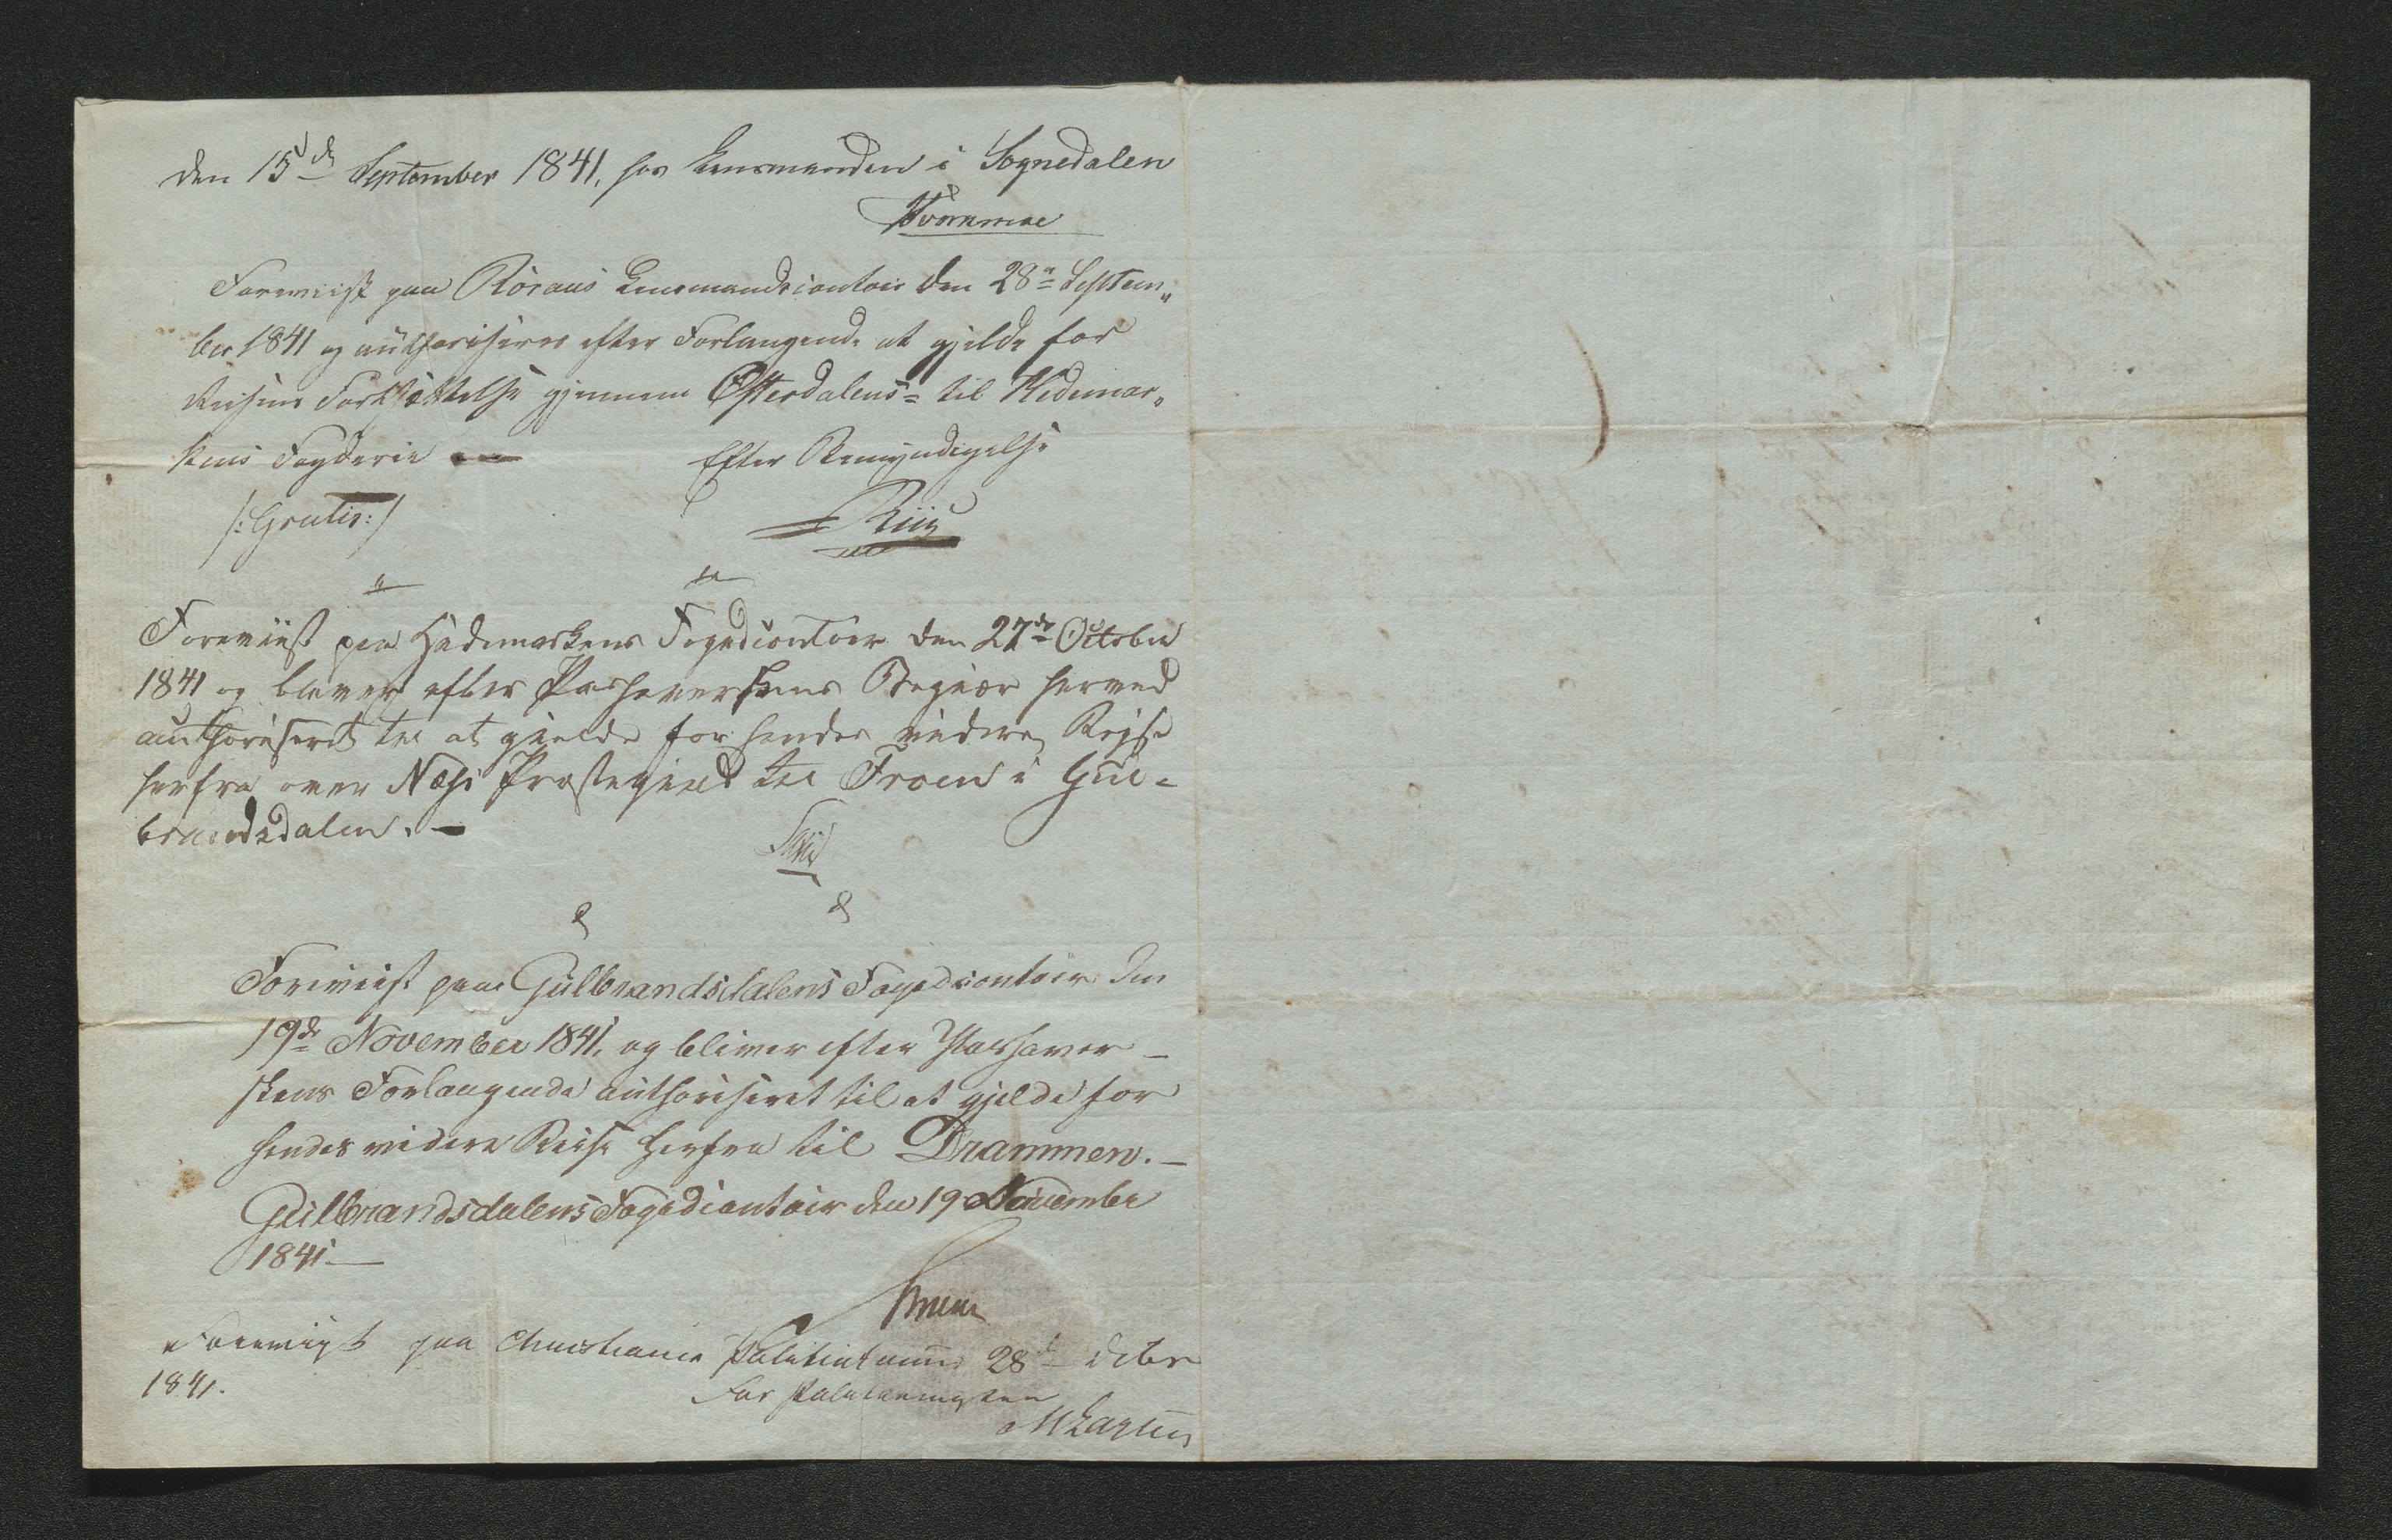 den 15de September 1841, hos Lensmanden i Sognedalen
Foreviist paa Röraas Lensmandscontoir den 28de Septem„
ber 1841 og authoriseres efter Forlangende at gjelde for
Reisens Fortsættelse gjennem Østerdalens= til Hedemar„
kens Fogderie
Efter Bemyndigelse
/:Gratis:/
Foreviist paa Hedemarkens Fogedcontoir den 27de October
1841 og bliver efter Pashaverskens Begiær herved
authoriseret til at gielde for hendes videre Rejse
herfra over Næs Præstegield til Froen i Gul-
brandsdalen. -
Foreviist paa Gulbrandsdalens Fogedcontoir den
19de November 1841. og bliver efter Pashaver-
skens Forlangende authoriseret til at gjelde for
hendes videre Reise herfra til Drammen. -
Gulbrandsdalens Fogedcontoir den 19 November
1841 -
Foreviist paa Christiania Politikammer 28de Octbr
1841.
For Politimesteren